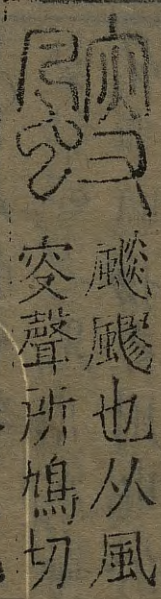 颼飂也从風
叜聲所鳩切